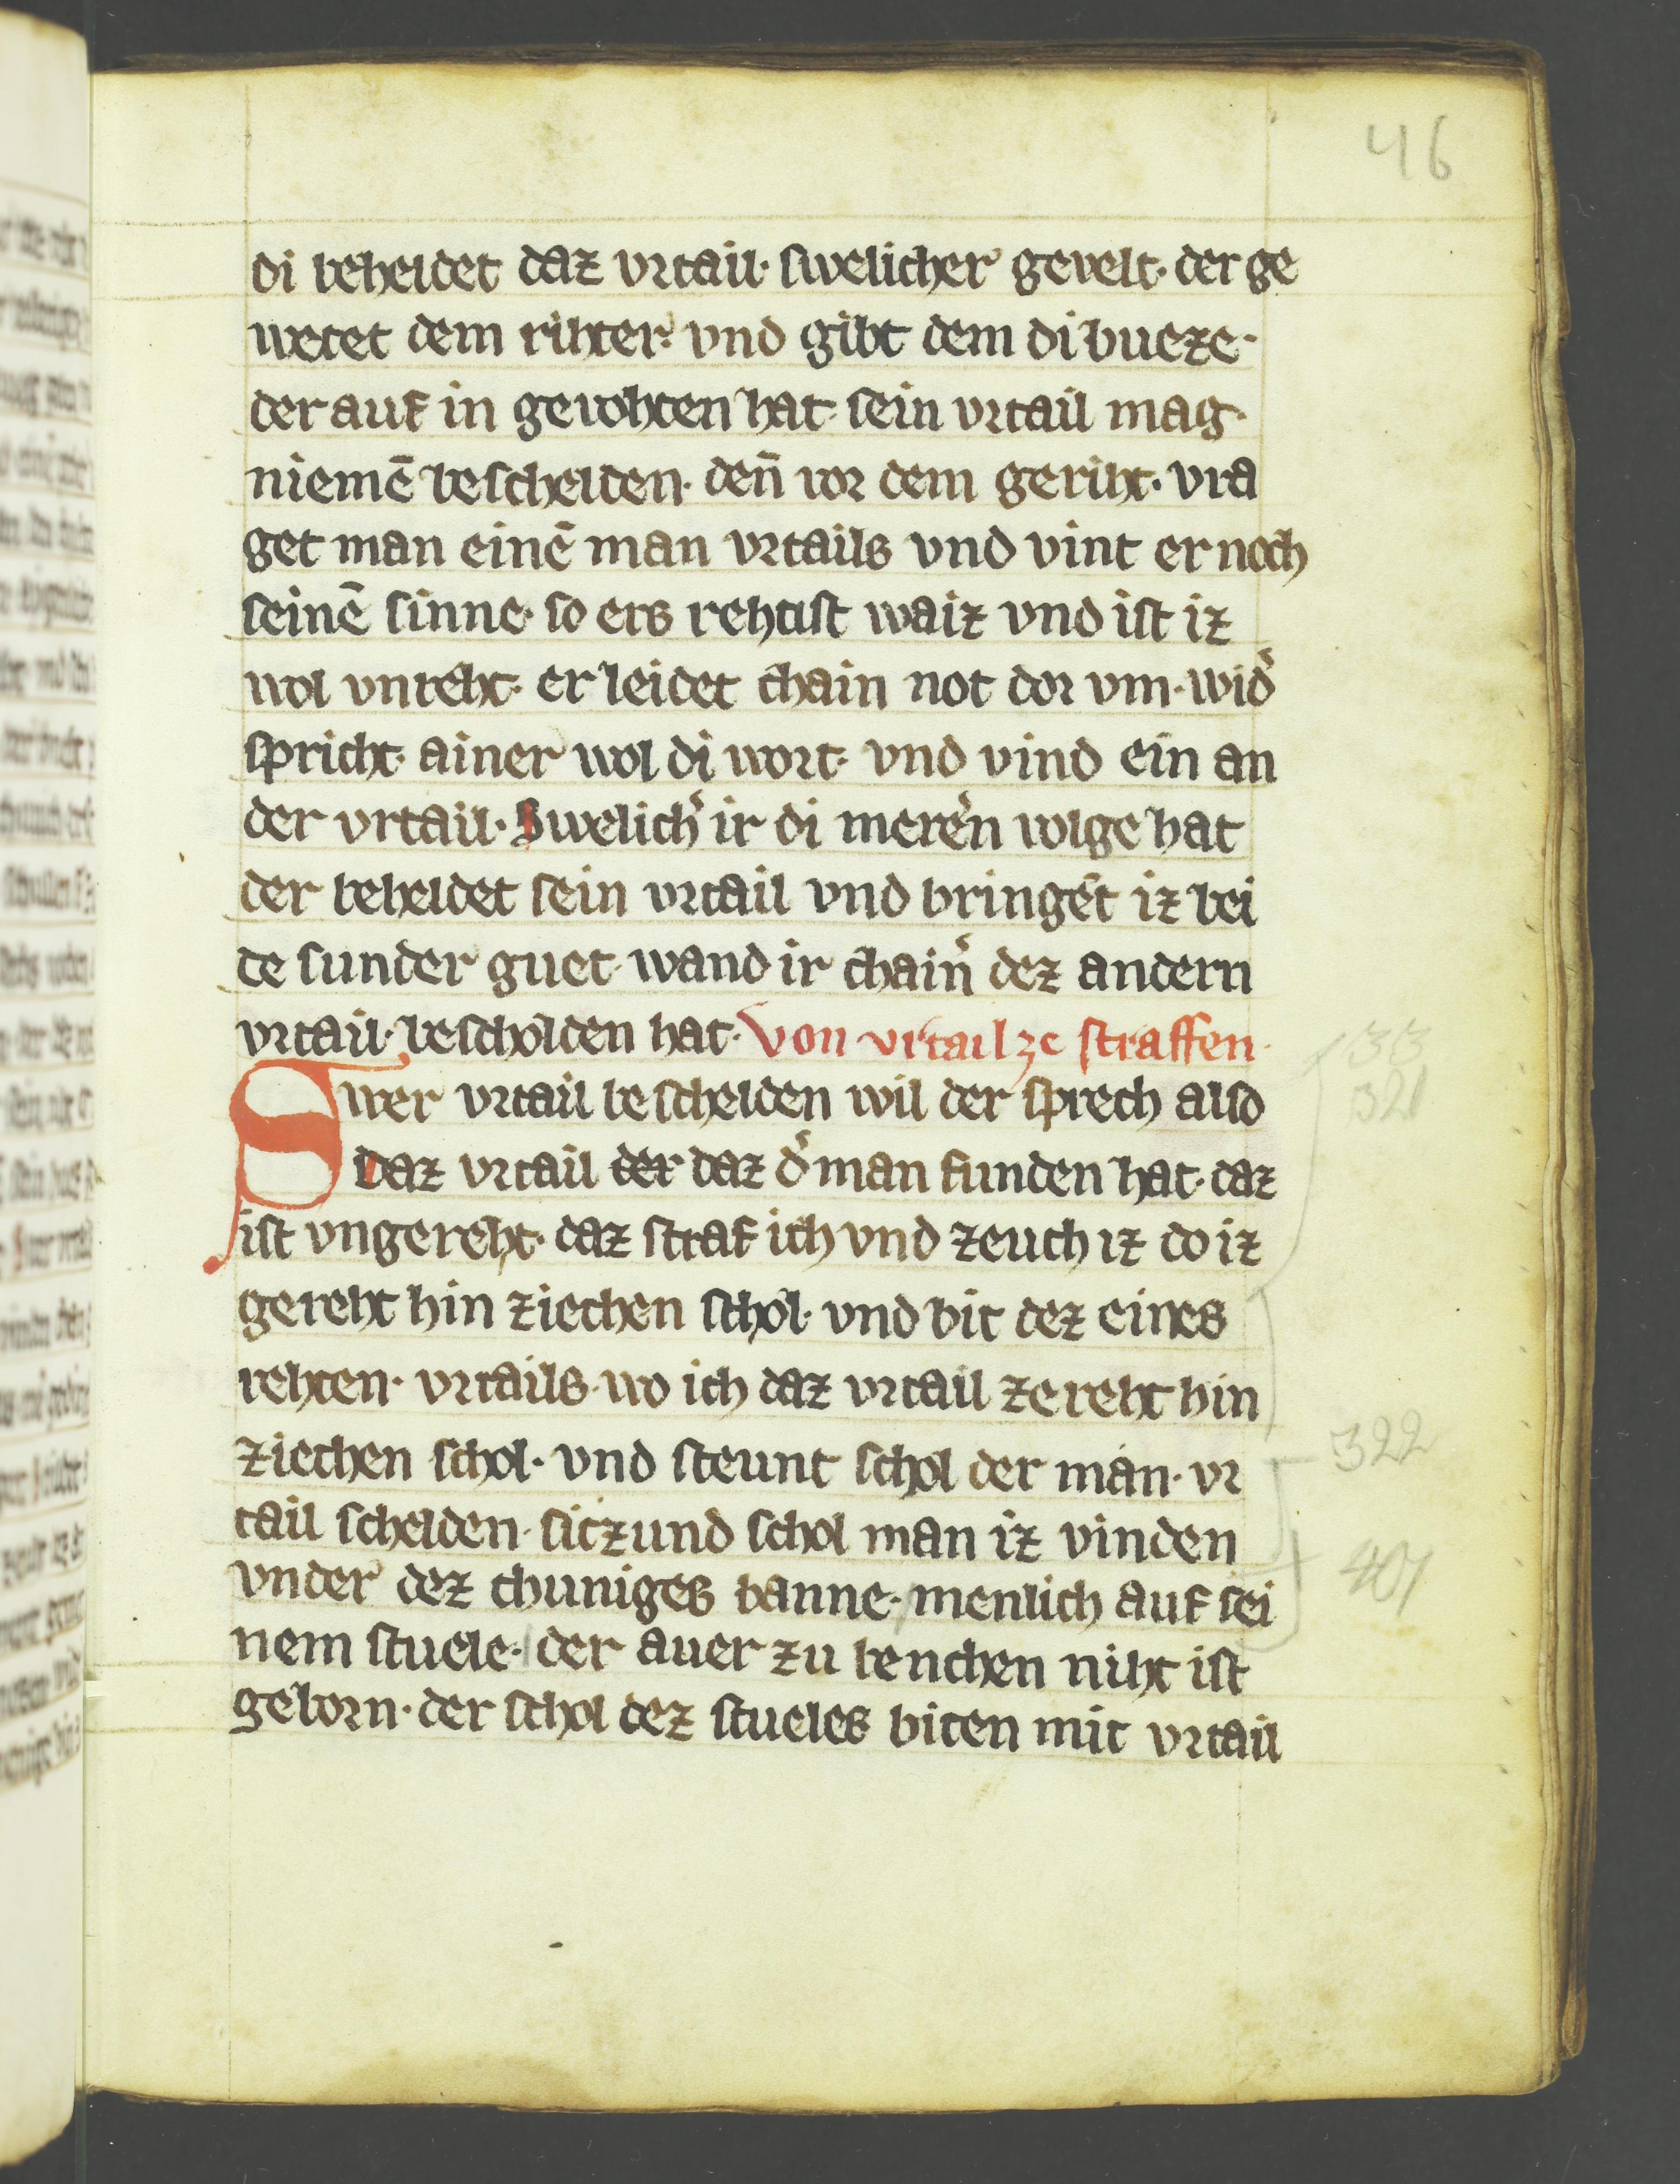 46
di beheldet daz vrtail· swelicher gevelt· der ge
wetet dem rihter· vnd gibt dem di bueze·
der auf in gevohten hat· sein vrtail mag·
niemē beschelden· deñ vor dem geriht· vra
get man einē man vrtails vnd vint er noch
seinē sinne· so ers rehtist waiz vnd ist iz
wol vnreht· er leidet chain not dor vm· wid̛
spricht· ainer wol di wort· vnd vind ein an
der vrtail· Swelich̛ ir di merern volge hat
der beheldet sein vrtail vnd bringet iz bei
de sunder guet· wand ir chain̛ dez andern
vrtail· bescholden hat· Von vrtail ze straffen·
Swer vrtail beschelden wil der sprech also
Daz vrtail der daz d̛ man funden hat· daz
ist vngereht· daz straf ich vnd zeuch iz do iz
gereht hin ziechen schol· vnd bit dez eines
rehten· vrtails· wo ich daz vrtail ze reht hin
ziechen schol· vnd steunt schol der man· vr
tail schelden· siczund schol man iz vinden
vnder dez chuniges banne· menlich auf sei
nem stuele· der auer zu benchen niht ist
geborn· der schol dez stueles biten mit vrtail
33
321
322
401